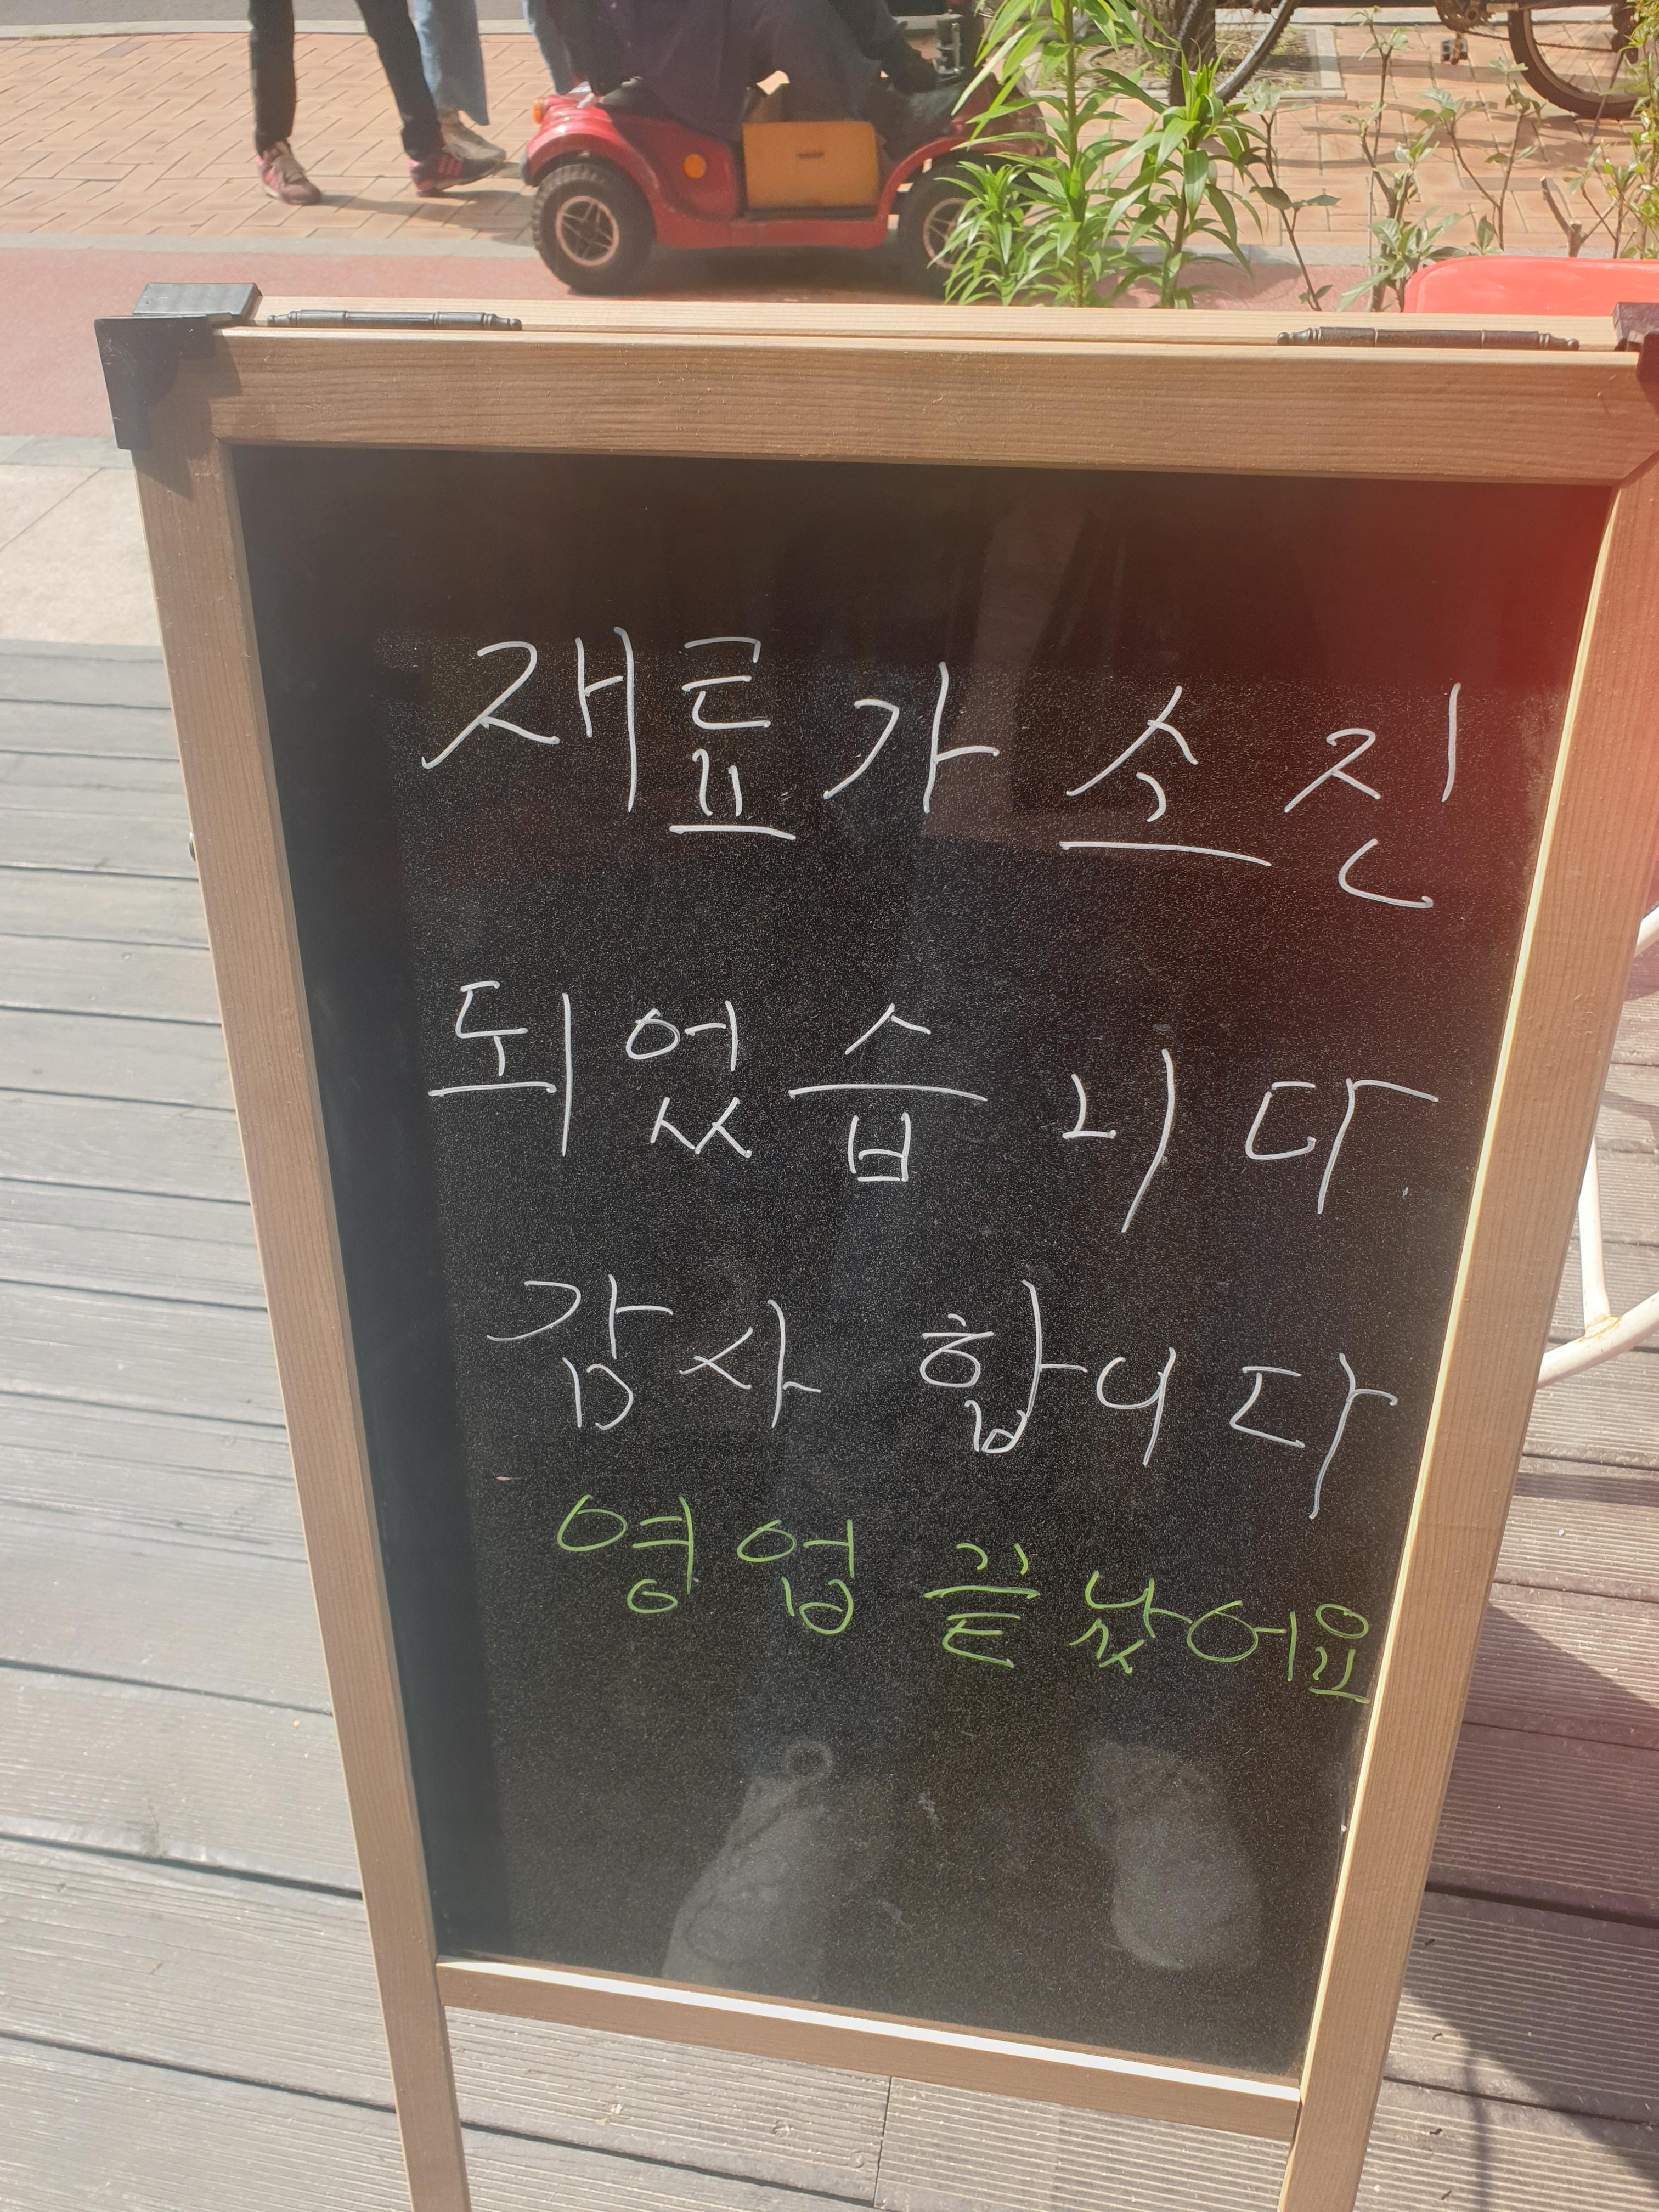 재료가 소진
되었습니다
감사 합니다
영업 끝났어요